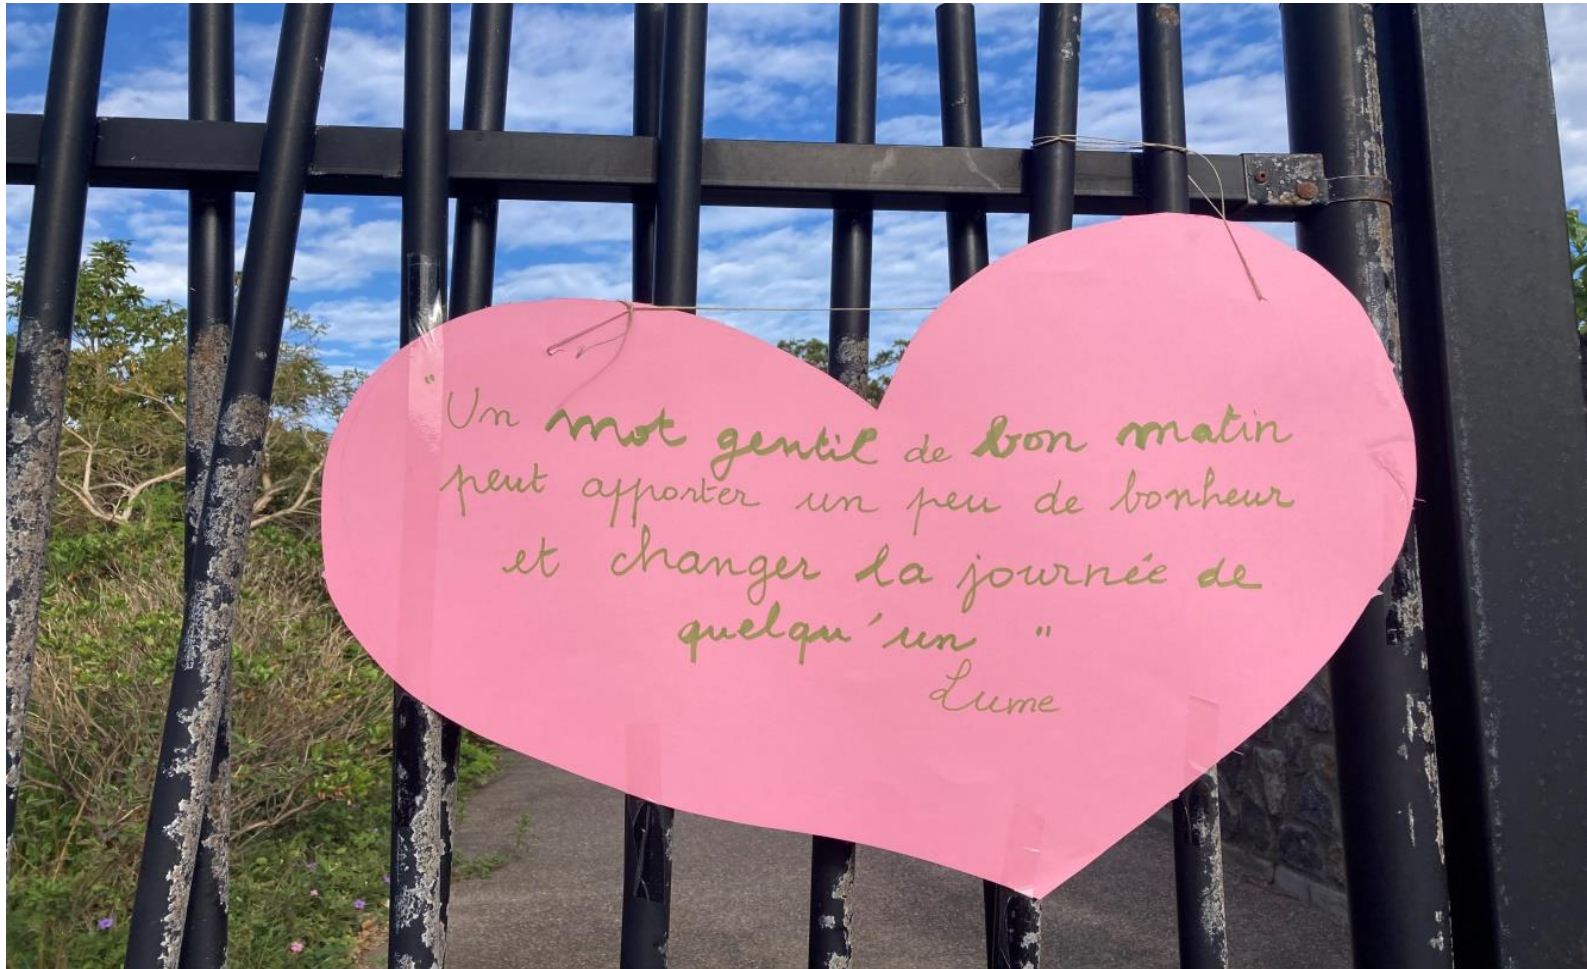 "Un mot gentil de bon matin
peut apporter un peu de bonheur
et changer la journée de
quelqu'un "
Lume